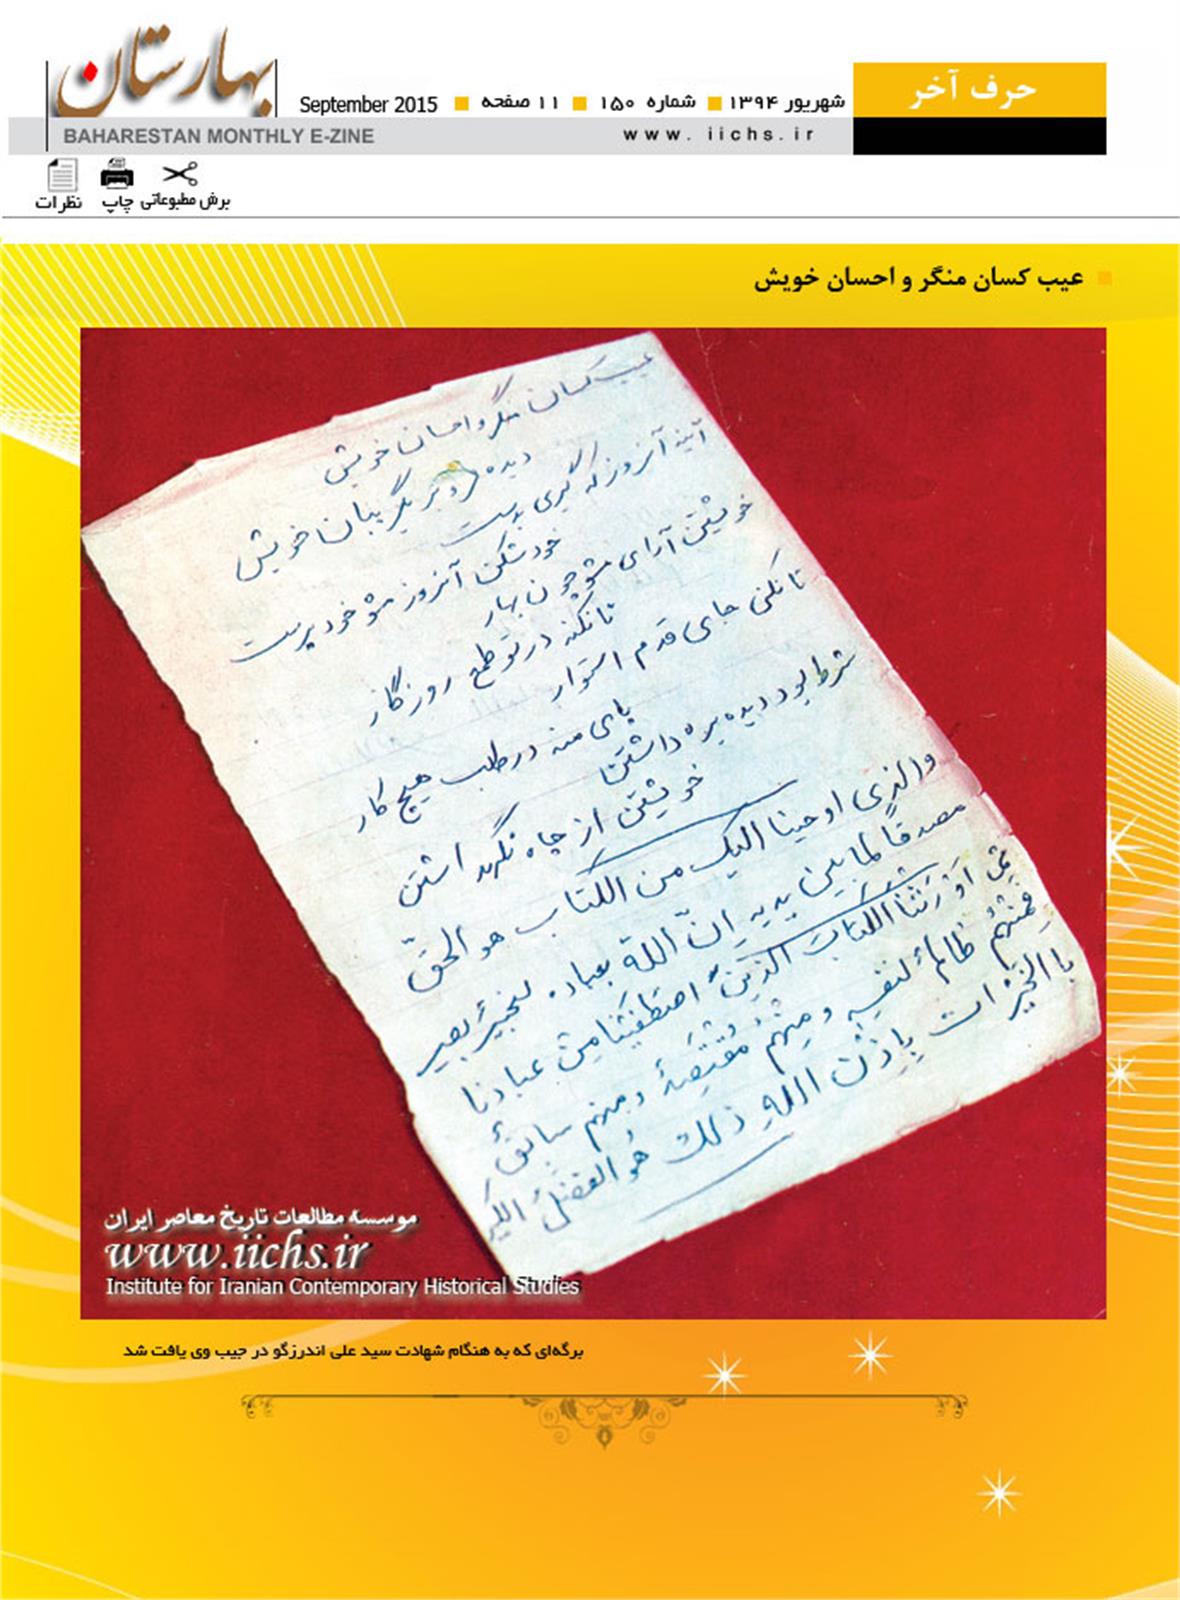 بهارستان
BAHARESTAN MONTHLY E-ZINE
حرف آخر
شهریور ۱۳۹۴ ■ شماره ۱۵۰ ■ ۱۱ صفحه ■ September 2015
www. iichs.ir
برش مطبوعاتی
چاپ
نظرات
عیب کسان منگر و احسان خویش
عیب کسان منگر و احسان خویش
دیده فرو بر بگریبان خویش
آینه آنروز که گیری بدست
خود شکن آنروز مشو خود پرست
خویشتن آرای مشو چون بهار
تا نکند در تو طمع روزگار
تا نکنی جای قدم استوار
پای منه در طلب هیچ کار
شرط بود دیده بره داشتن
خویشتن از چاه نگهداشتن
والذی اوحینا الیک من الکتاب هو الحقّ
مصدقاً لما بین یدیه إنّ اللّه بعباده لخبیرٌ بصیر
ثمَّ اَوْرَثنا الکتابَ الذینَ اصْطَفَیْنا مِنْ عبادنا
فمِنْهُم ظالمٌ لنفسِهِ و مِنْهُم مُقْتَصِدٌ و مِنْهُم سابقٌ
باالخَیْرات بِإِذْنِ اللهِ ذلک هُوَ الفَضْلُ الکبیر
موسسه مطالعات تاریخ معاصر ایران
www.iichs.ir
Institute for Iranian Contemporary Historical Studies
برگه‌ای که به هنگام شهادت سید علی اندرزگو در جیب وی یافت شد